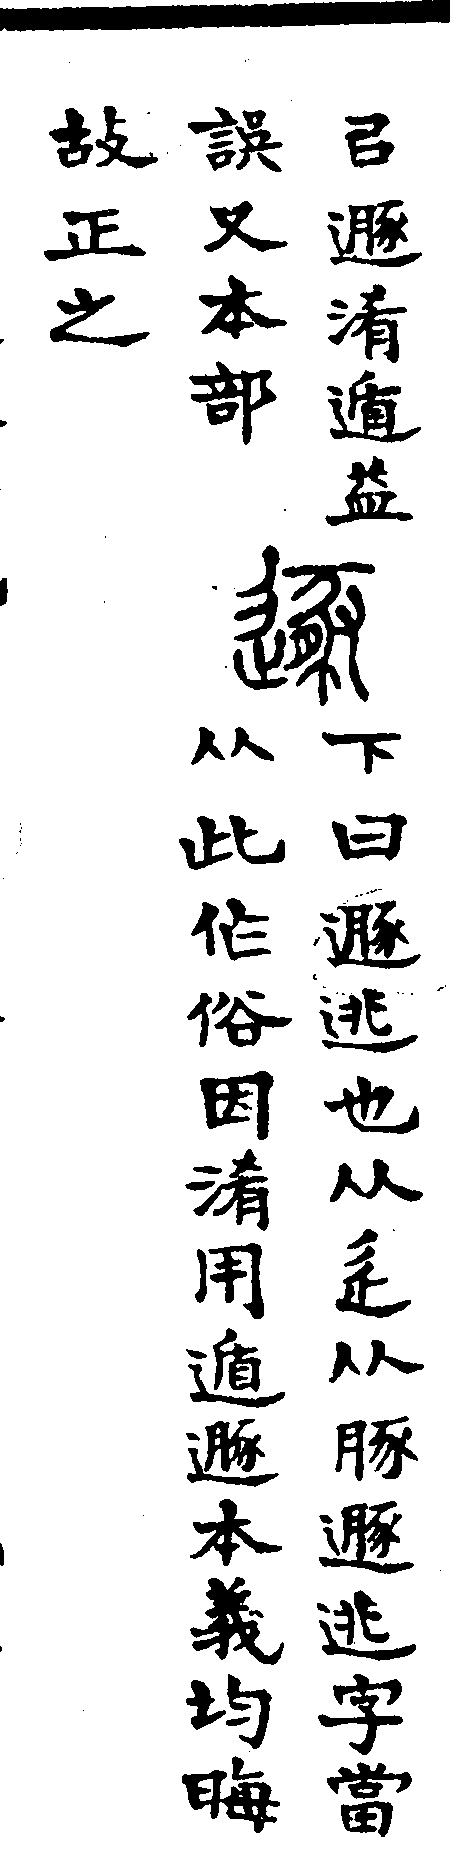 㠯遯淆遁益
誤又本部
遯
下曰遯逃也从辵从豚遯逃字當
从此作俗因淆用遁遯本義均晦
故正之